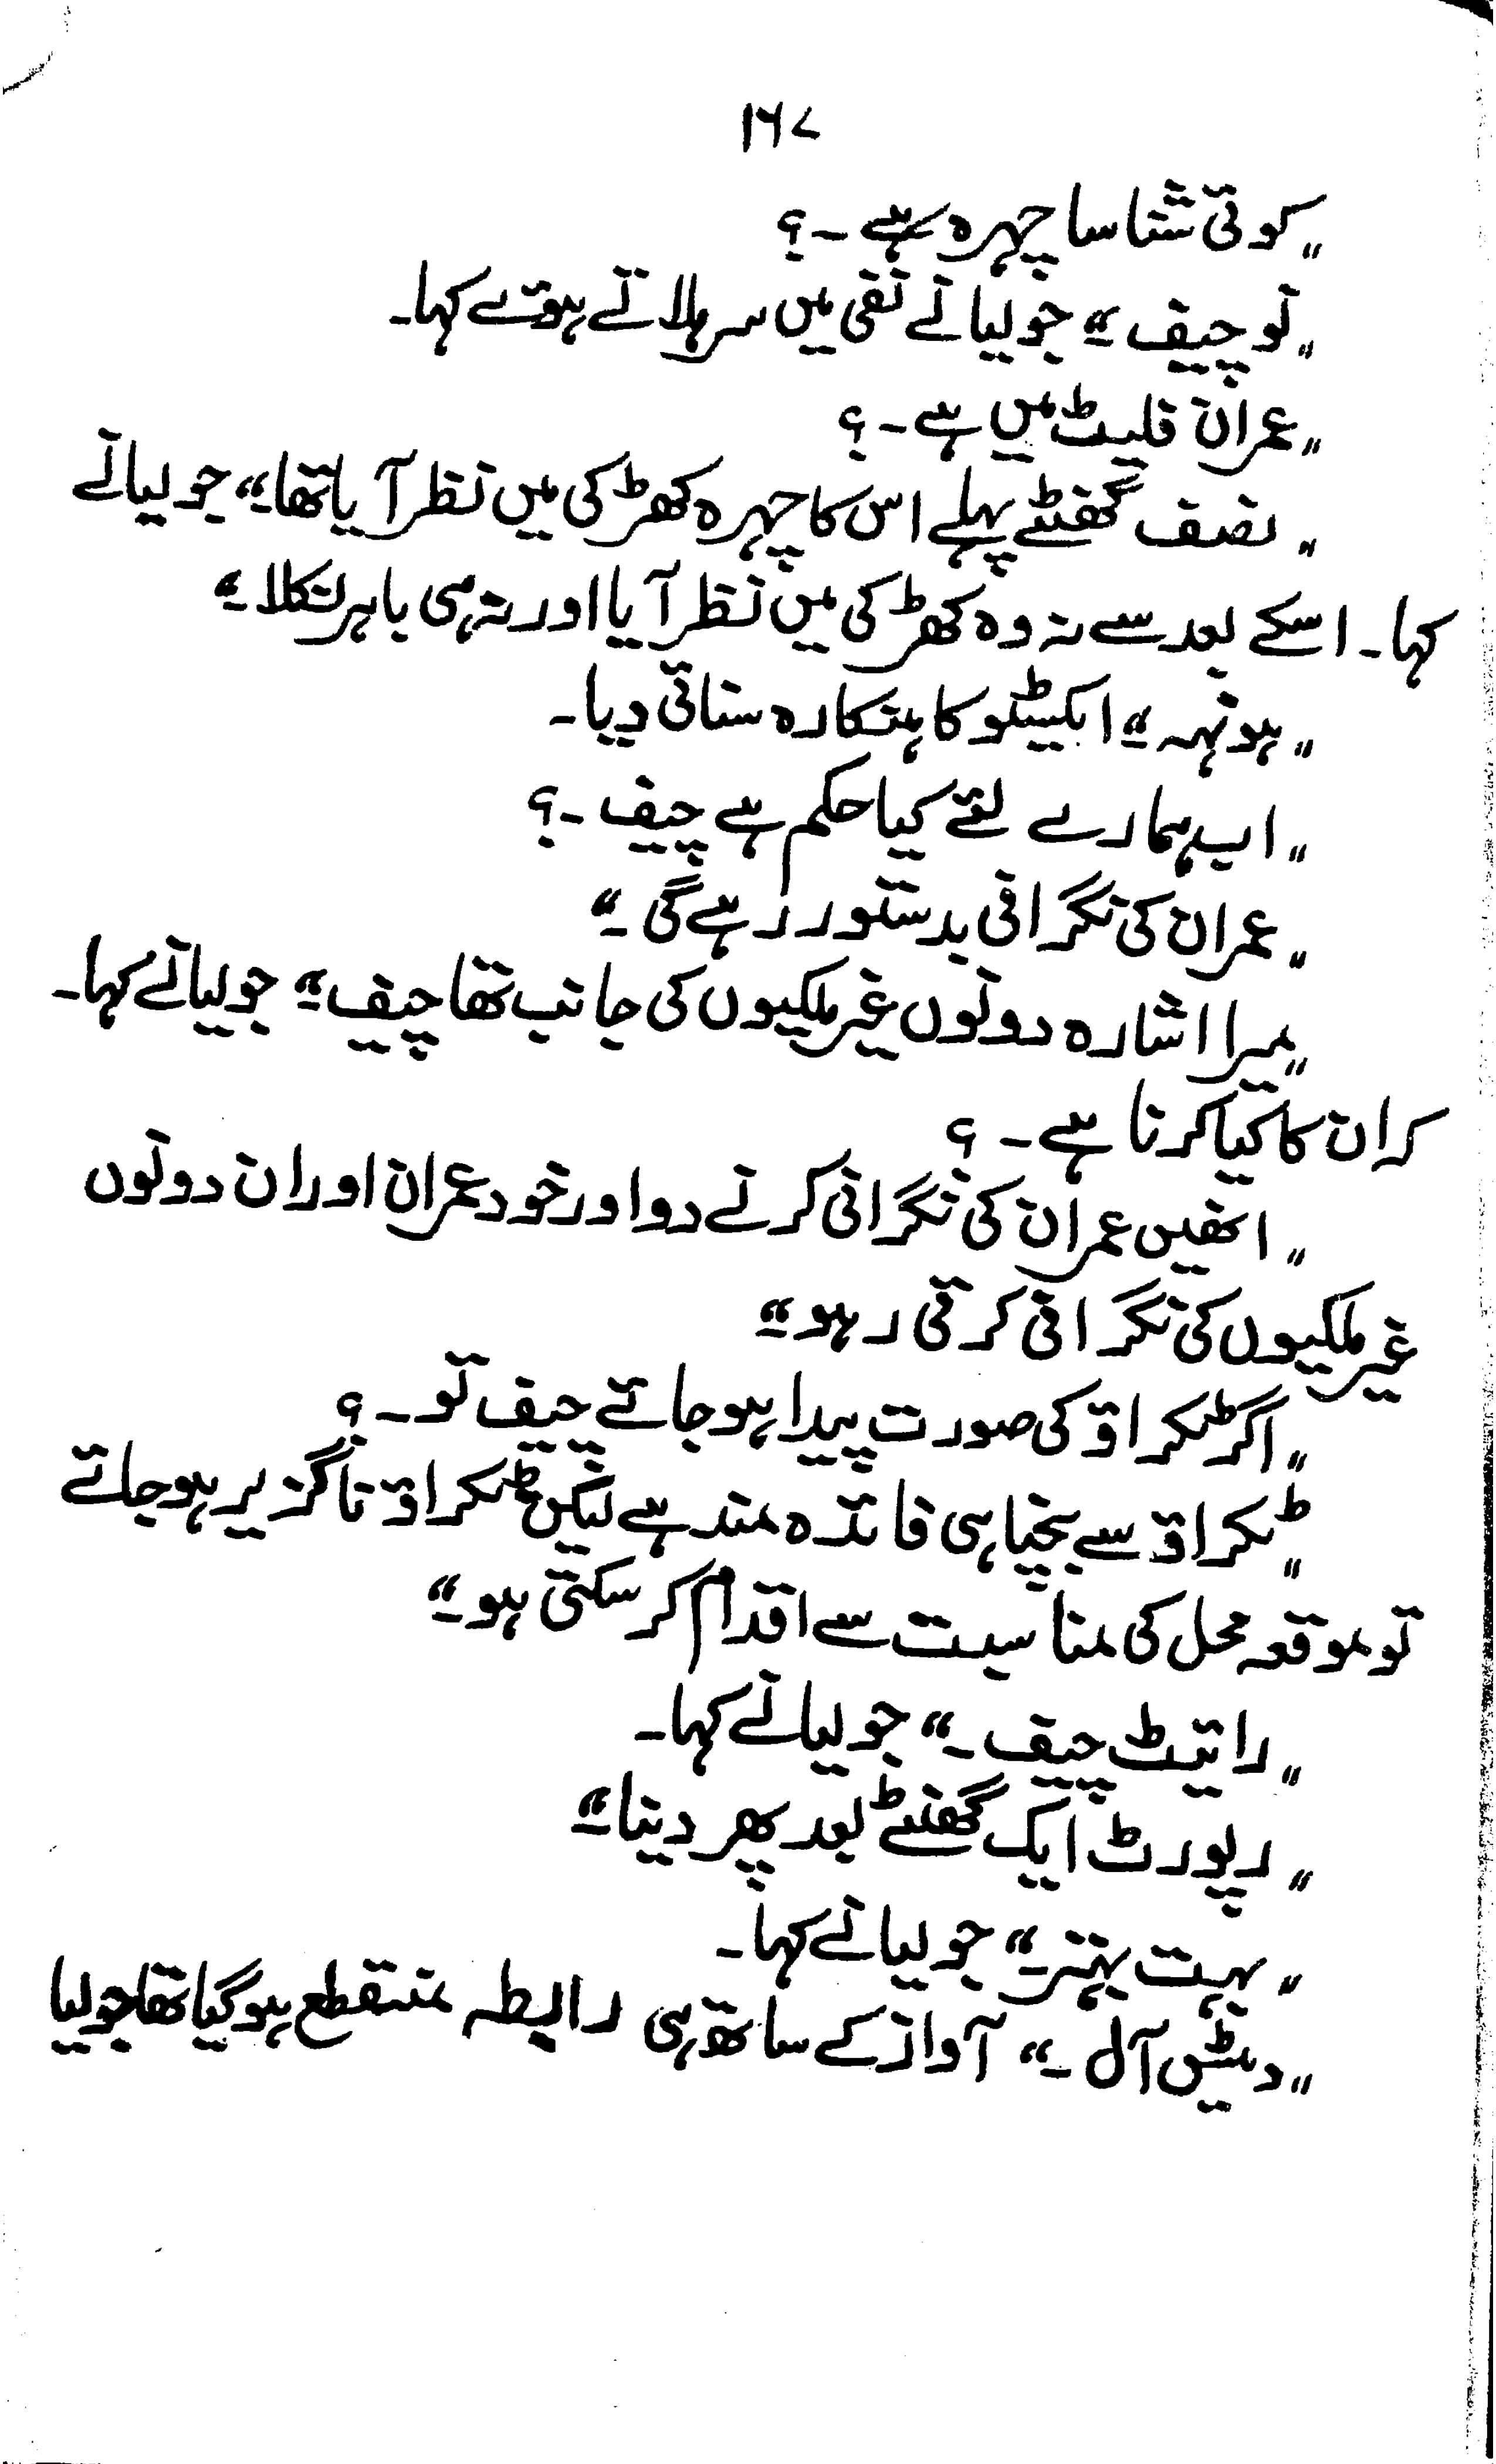 ۱۶۷
"کوئی شناسا چہرہ ہے ۔؟
"نو چیف ۔" جولیا نے نفی میں سر ہلاتے ہوئے کہا۔
"عمران فلیٹ میں ہے ۔؟
"نصف گھنٹے پہلے اس کا چہرہ کھڑکی میں نظر آیا تھا۔" جولیا نے
کہا۔ اسکے بعد سے نہ وہ کھڑکی میں نظر آیا اور نہ ہی باہر نکلا ۔"
"ہونہہ ۔" ایکسٹو کا ہنکارہ سنائی دیا۔
"اب ہمارے لئے کیا حکم ہے چیف ۔؟
"عمران کی نگرانی بدستور رہے گی ۔"
"میرا اشارہ دونوں غیر ملکیوں کی جانب تھا چیف ۔" جولیا نے کہا۔
کہ ان کا کیا کرنا ہے ۔ ؟
"انھیں عمران کی نگرانی کرنے دو اور خود عمران اور ان دونوں
غیر ملکیوں کی نگرانی کرتی رہو ۔"
"اگر ٹکراؤ کی صورت پیدا ہو جائے چیف تو ۔؟
"ٹکراؤ سے بچنا ہی فائدہ مند ہے لیکن ٹکراؤ ناگزیر ہو جائے
تو موقعہ محل کی مناسبت سے اقدام کر سکتی ہو ۔"
"رائیٹ چیف ۔" جولیا نے کہا۔
"رپورٹ ایک گھنٹے بعد پھر دینا ۔"
"بہت بہتر ۔" جولیا نے کہا۔
"دیٹس آل ۔" آواز کے ساتھ ہی رابطہ منقطع ہو گیا تھا جولیا